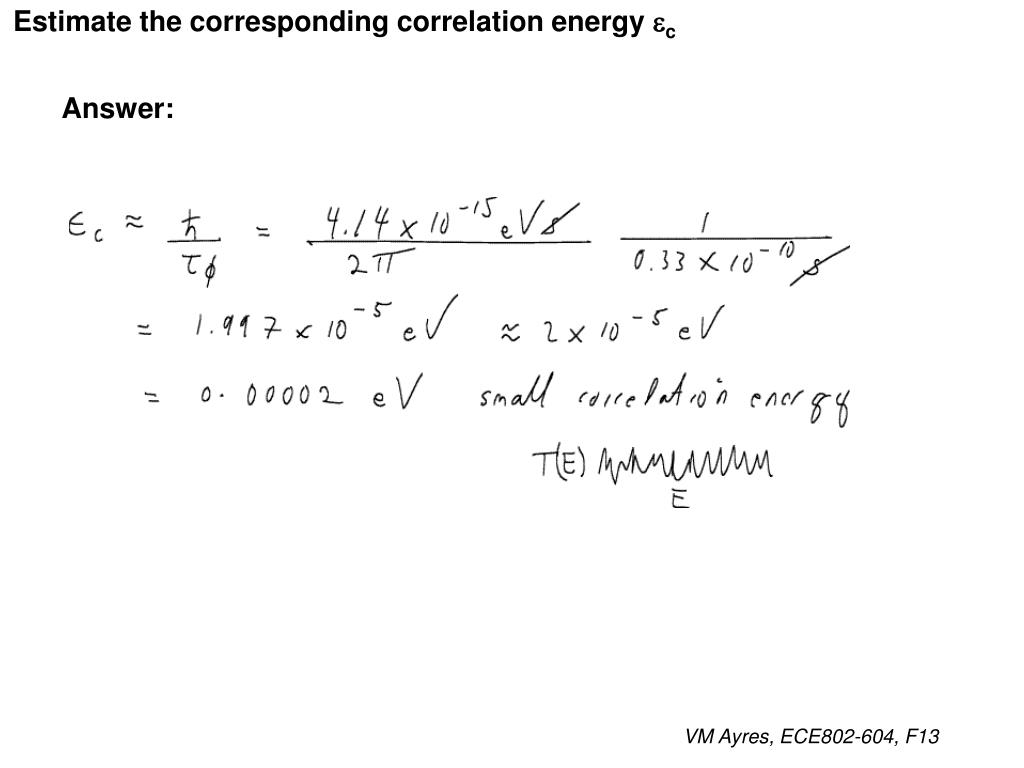 Estimate the corresponding correlation energy εc
Answer:
ϵc ≈ ℏ/τϕ = 4.14 x 10^-15 eVs/2π 1/0.33 x 10^-10 s
= 1.997 x 10^-5 eV ≈ 2 x 10^-5 eV
= 0.00002 eV small correlation energy
T(E)
E
VM Ayres, ECE802-604, F13